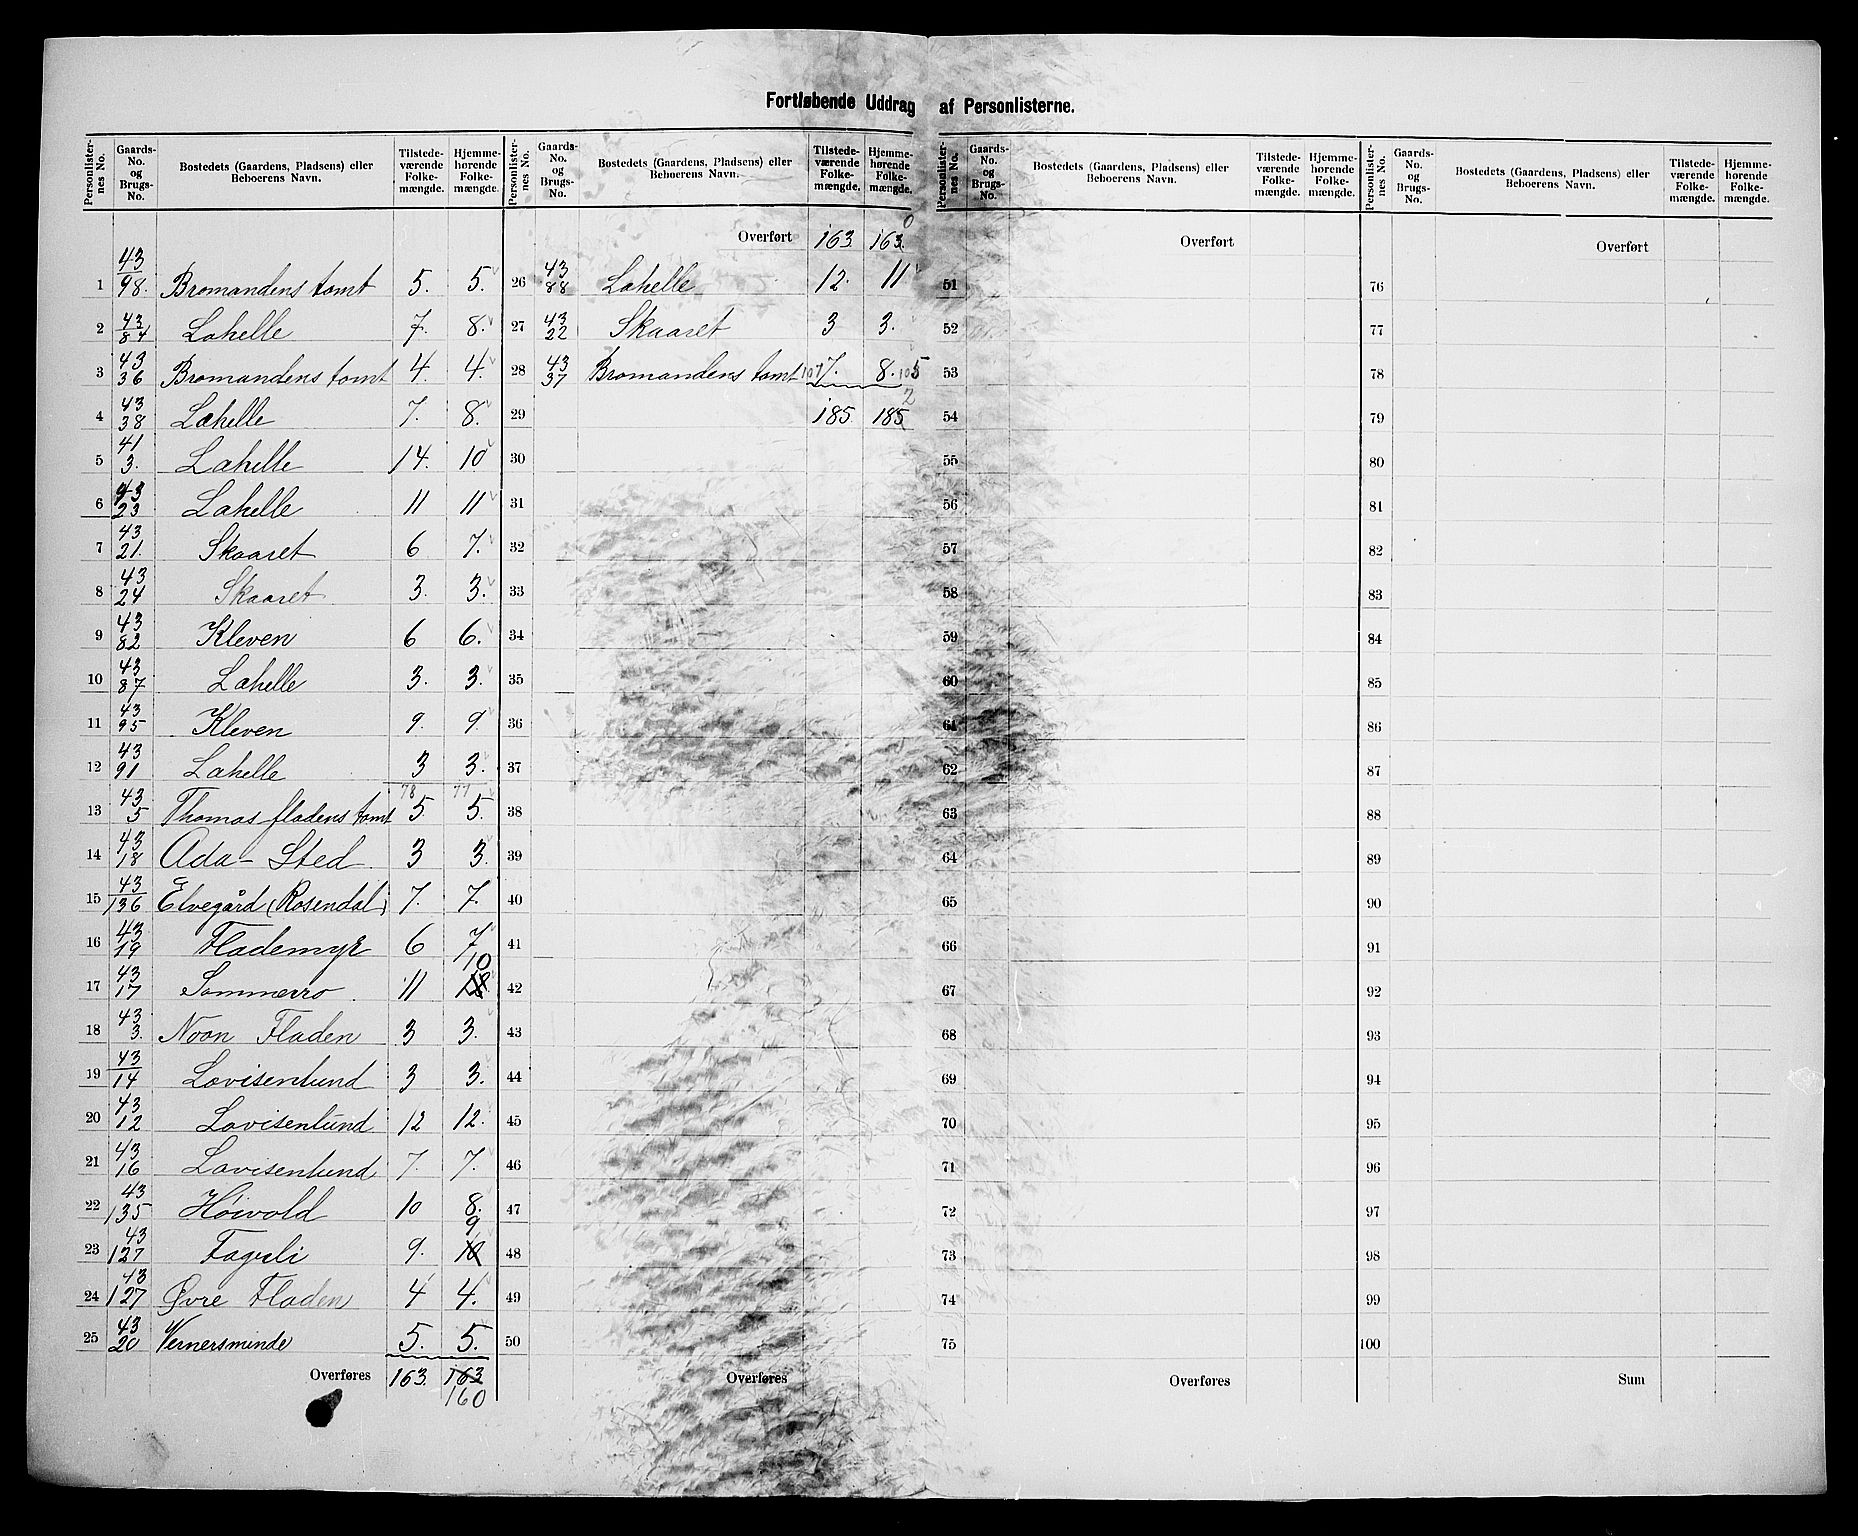 Fortløbende Uddrag af Personlisterne.
Personlister-nes No. | Gaards-No. og Brugs-No. | Bostedets (Gaardens, Pladsens) eller Beboerens Navn. | Tilstede-værende Folke-mængde. | Hjemme-hørende Folke-mængde.
1 | 43/98. | Bromandens tomt | 5. | 5.
2 | 43/84 | Lahelle | 7. | 8.
3 | 43/36 | Bromandens tomt | 4. | 4.
4 | 43/38 | Lahelle | 7. | 8.
5 | 41/3. | Lahelle | 14. | 10
6 | 43/23 | Lahelle | 11 | 11
7 | 43/21. | Skaaret | 6 | 7.
8 | 43/24 | Skaaret | 3. | 3.
9 | 43/82 | Kleven | 6 | 6.
10 | 43/87 | Lahelle | 3. | 3.
11 | 43/95 | Kleven | 9. | 9.
12 | 43/91 | Lahelle | 3 | 3.
78 | 77
13 | 43/5 | Thomas fladens tomt | 5. | 5.
14 | 43/18 | Ada-Sted | 3 | 3.
15 | 43/136 | Elvegård (Rosendal) | 7. | 7.
16 | 43/19 | Flademyr | 6 | 7.
17 | 43/17 | Sommerro | 11 | 10
18 | 43/3. | Noan Fladen | 3 | 3.
19 | 43/14 | Lovisenlund | 3 | 3.
20 | 43/12 | Lovisenlund | 12 | 12.
21 | 43/16 | Lovisenlund | 7. | 7.
22 | 43/135 | Høivold | 10 | 8.
23 | 43/127 | Fagerli | 9. | 10 9
24 | 43/127 | Øvre Fladen | 4 | 4.
25 | 43/20 | Vernersminde | 5. | 5.
Overføres | 163. | 163 160
Personlister-nes No. | Gaards-No. og Brugs-No. | Bostedets (Gaardens, Pladsens) eller Beboerens Navn. | Tilstede-værende Folke-mængde. | Hjemme-hørende Folke-mængde.
Overført | 163. | 163. 0
26 | 43/88 | Lahelle | 12. | 11
27 | 43/22 | Skaaret | 3 | 3.
28 | 43/37 | Bromandens tomt | 107 7. | 8. 105
29 | 185 | 185 2
30
31
32
33
34
35
36
37
38
39
40
41
42
43
44
45
46
47
48
49
50
Overføres
Personlister-nes No. | Gaards-No. og Brugs-No. | Bostedets (Gaardens, Pladsens) eller Beboerens Navn. | Tilstede-værende Folke-mængde. | Hjemme-hørende Folke-mængde.
Overført
51
52
53
54
55
56
57
58
59
60
61
62
63
64
65
66
67
68
69
70
71
72
73
74
75
Overføres
Personlister-nes No. | Gaards-No. og Brugs-No. | Bostedets (Gaardens, Pladsens) eller Beboerens Navn. | Tilstede-værende Folke-mængde. | Hjemme-hørende Folke-mængde.
Overført
76
77
78
79
80
81
82
83
84
85
86
87
88
89
90
91
92
93
94
95
96
97
98
99
100
Sum